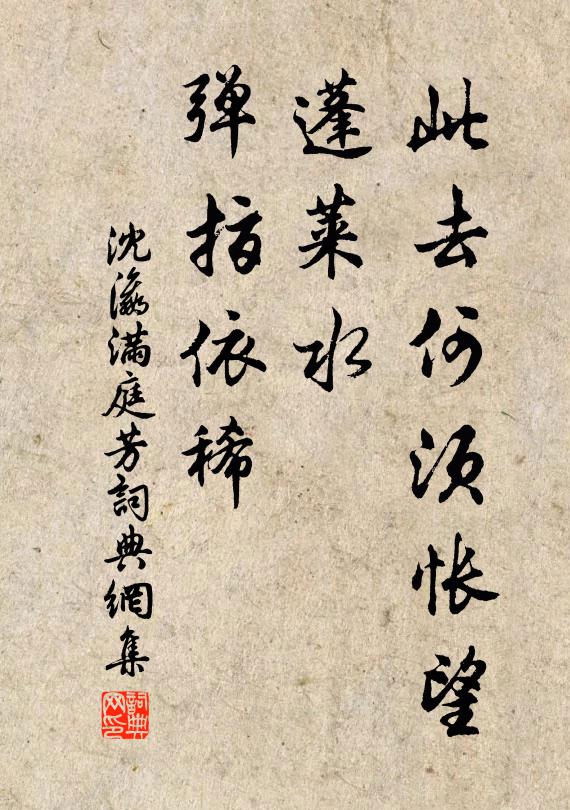 此去何须怅望
蓬莱水
弹指依稀
沈瀛满庭芳詞典網集
詞典网印